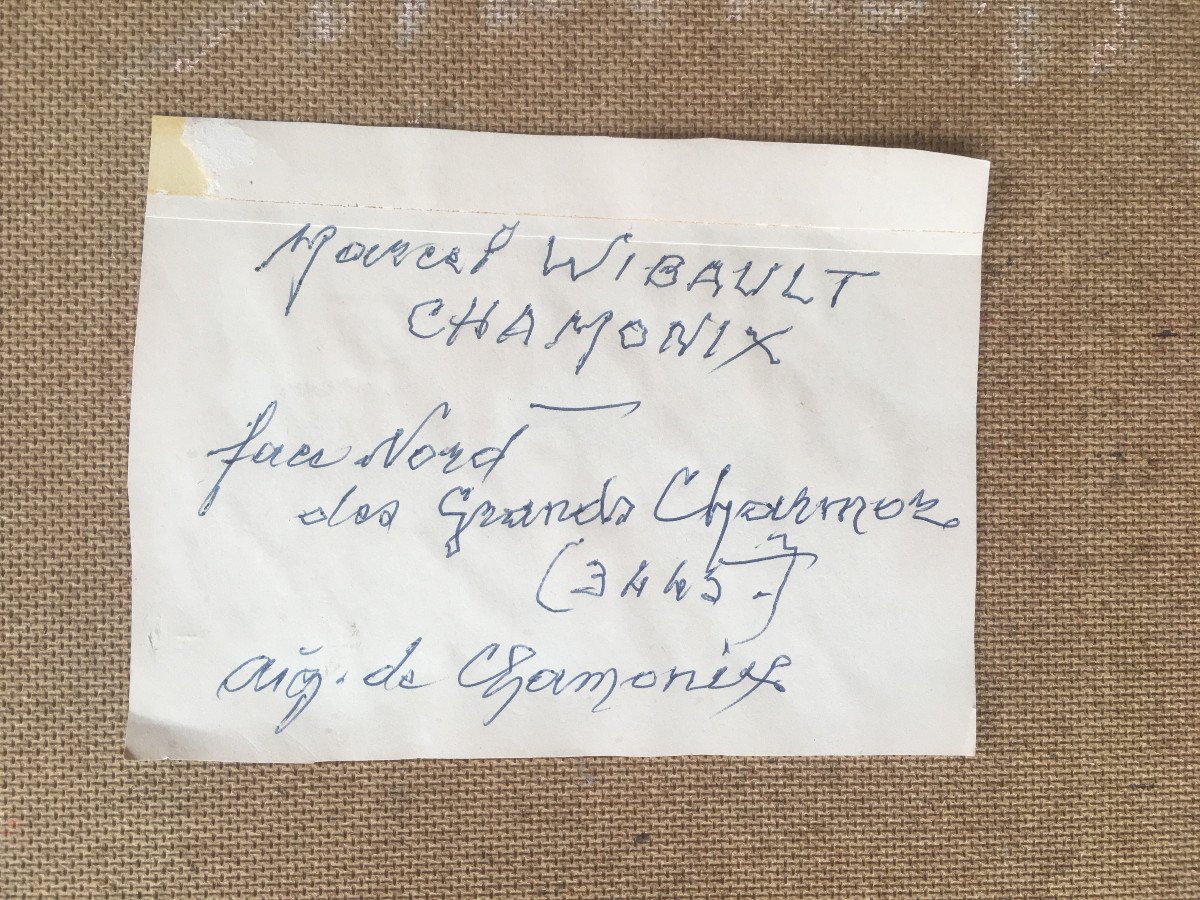 Marcel WIBAULT
CHAMONIX
face Nord
des Grands Charmoz
(3445 m)
Aig. de Chamonix